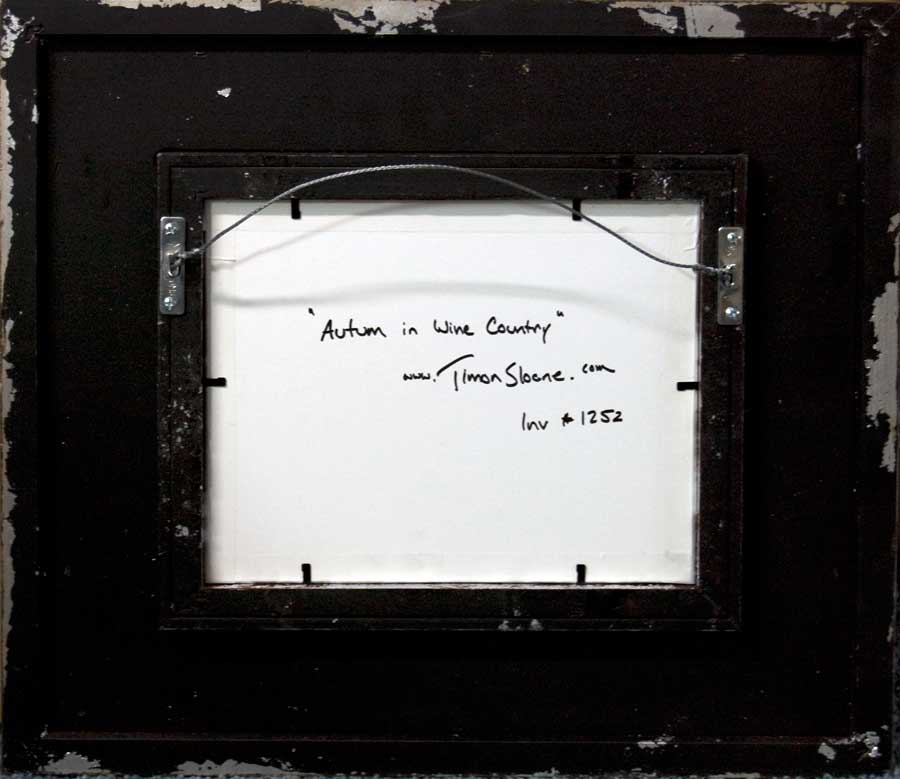 "Autum in Wine Country"
www.TimonSloane.com
Inv # 1252